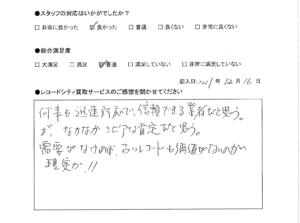 ●スタッフの対応はいかがでしたか？
□非常に良かった ☑良かった □普通 □良くない □非常に良くない
●総合満足度
□大満足 □満足 ☑普通 □満足していない □非常に満足していない
記入日 2021年 12月 16日
●レコードシティ買取サービスのご感想を聞かせてください
何事も迅速対応で、信頼できる業者だと思う。
が、なかなかシビアな査定だと思う。
需要がなければ、古いレコードも価値がないのが
現実か!!